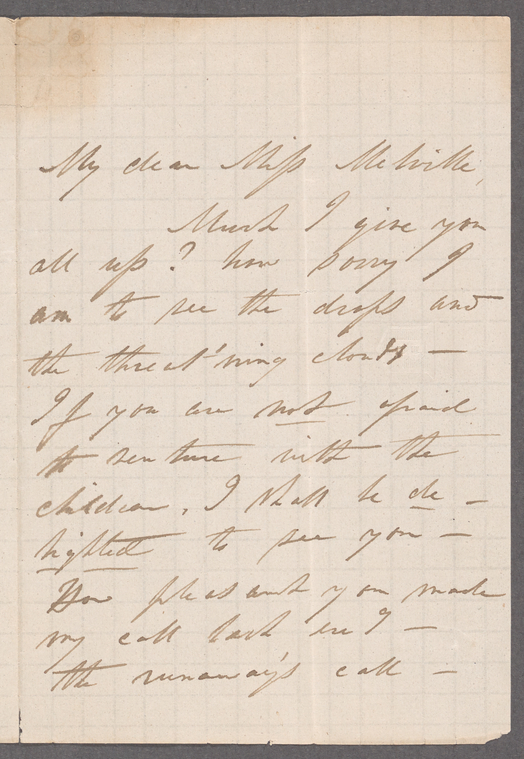 My dear Miss Melville,
Must I give you
all up? how sorry I
am to see the drops and
the threat'ning clouds —
If you are not afraid
to venture with the
children, I shall be de –
lighted to see you —
How pleasant you made
my call last eve'g —
the runaway's call —